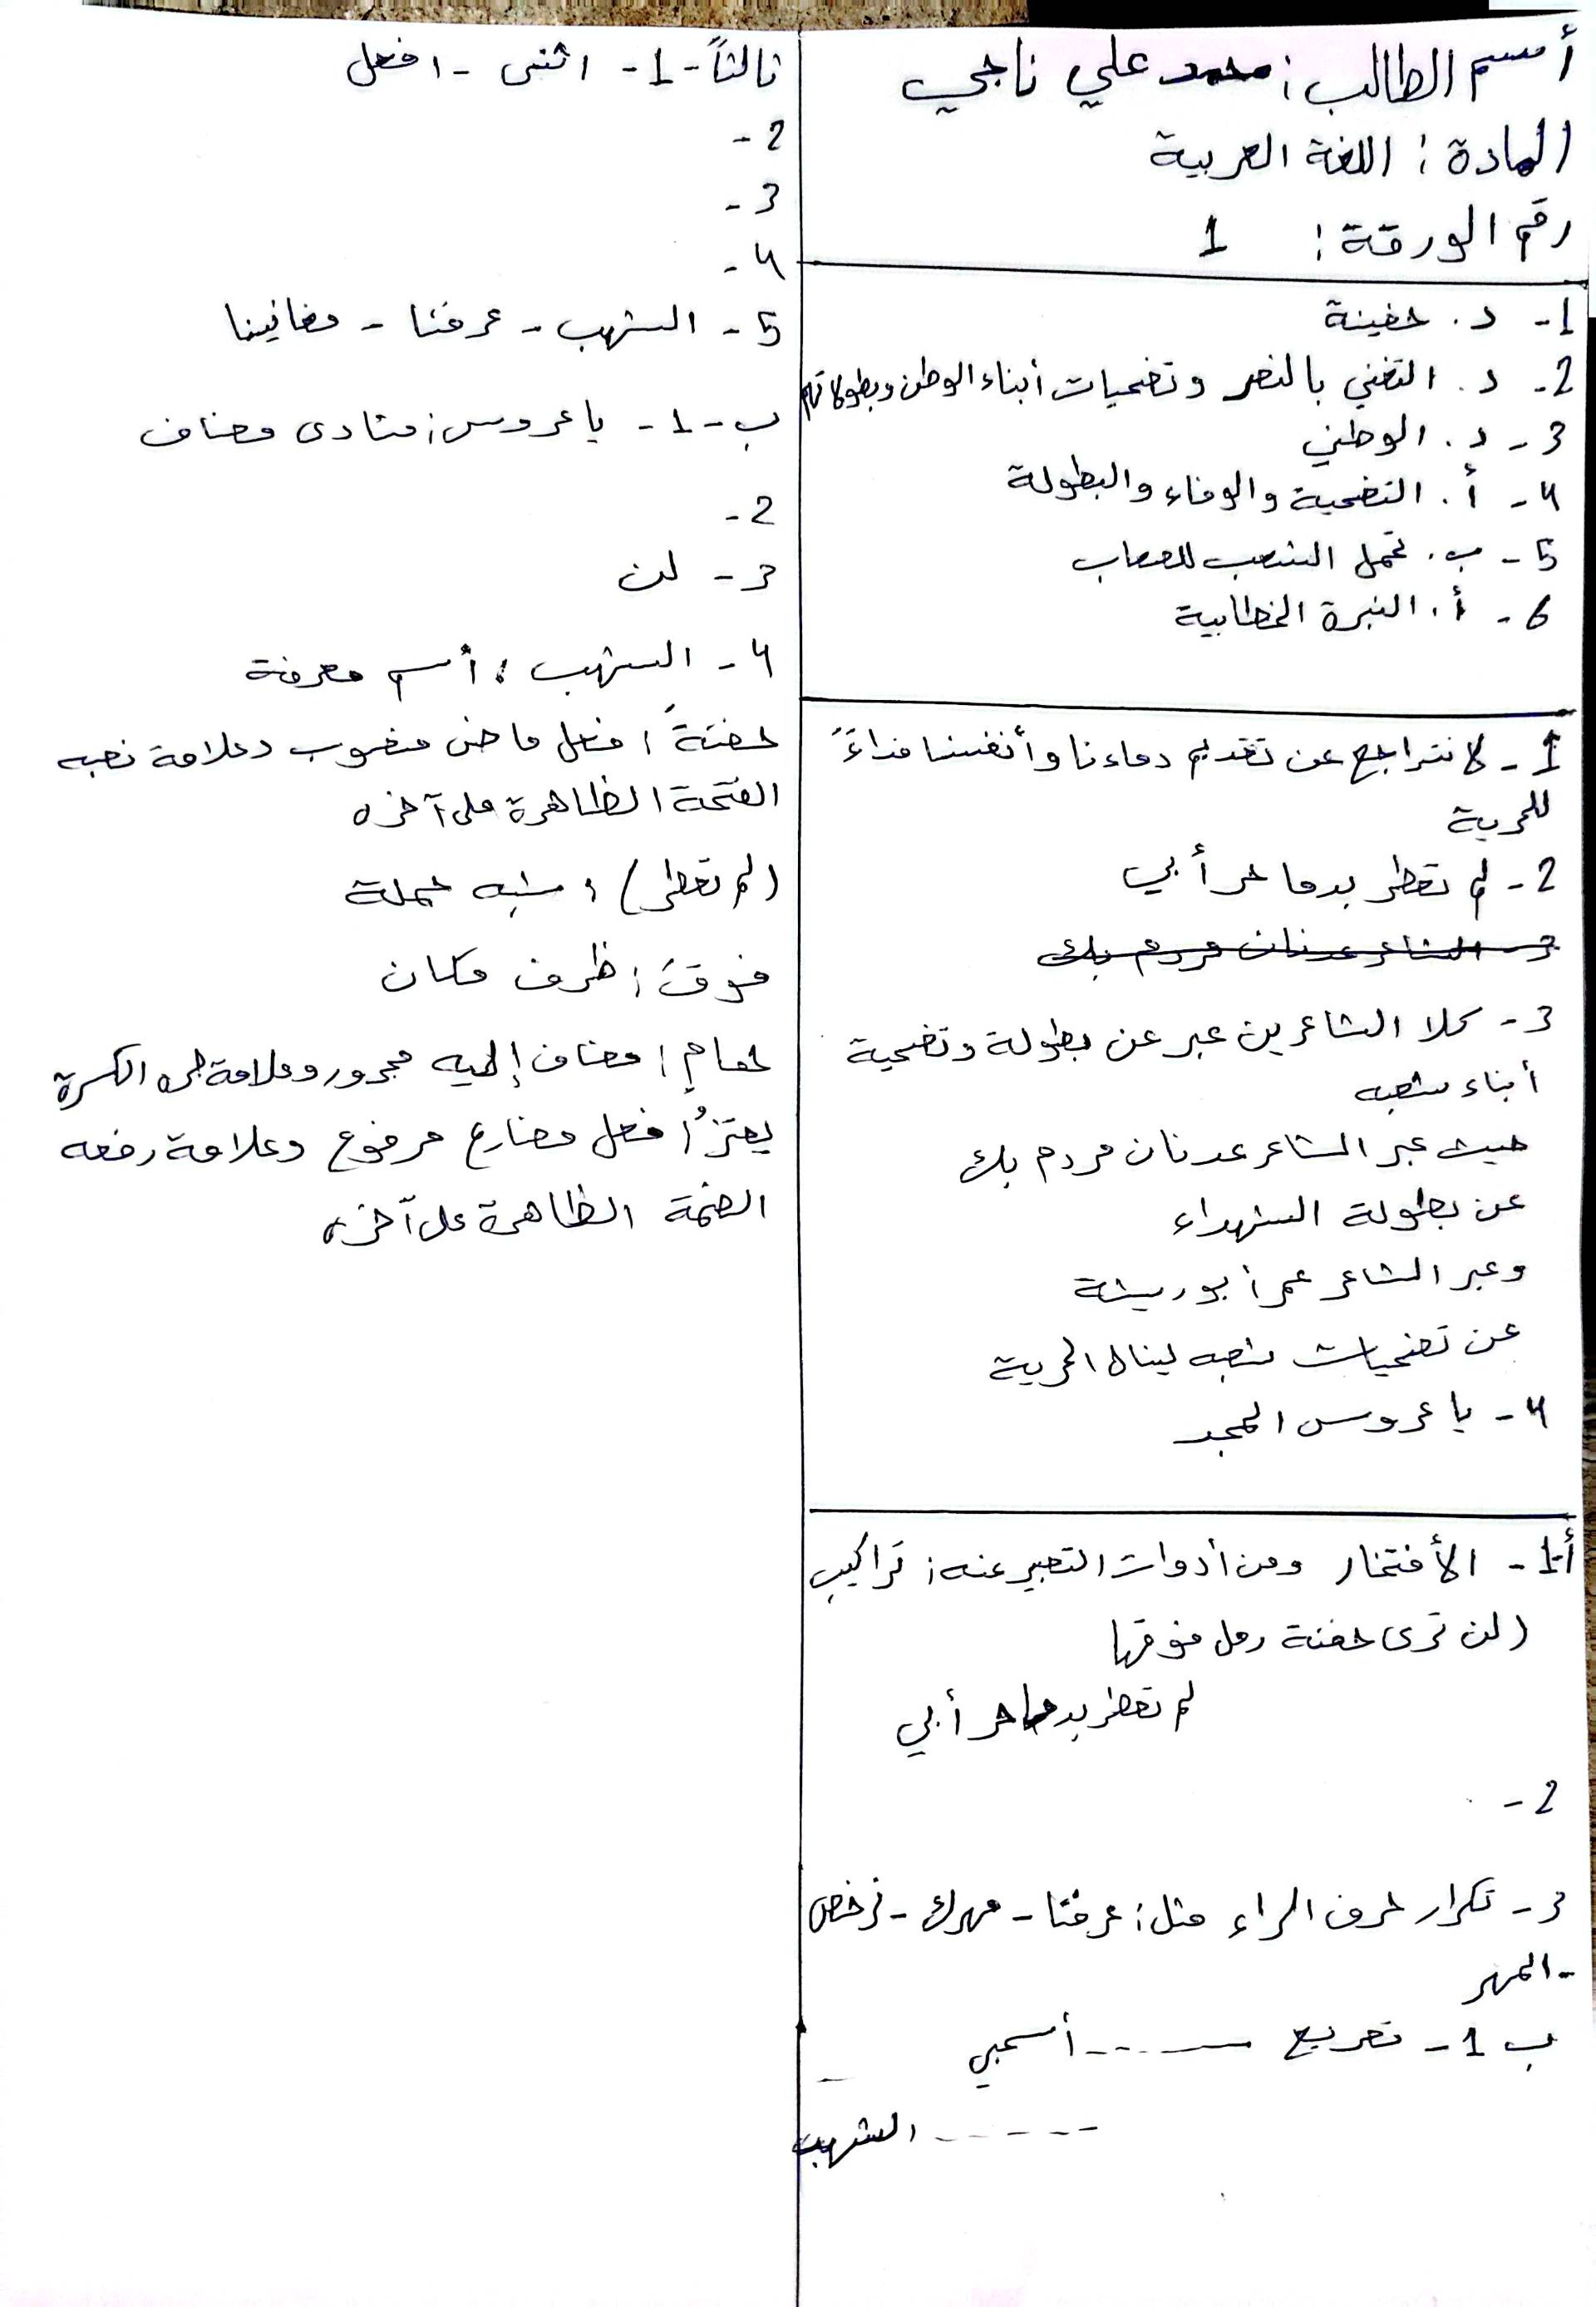 أسم الطالب: محمد علي ناجي
المادة: اللغة العربية
رقم الورقة: 1
1- د. حفينة
2- د. التغني بالنصر وتضحيات أبناء الوطن وبطولاتهم
3- د. الوطني
4- أ. التضحية والوفاء والبطولة
5- ب. تحمل الشعب للصعاب
6- أ. النبرة الخطابية
1- لا نتراجع عن تقديم دماءنا وأنفسنا فداءً
للحرية
2- لم تعطر بدما حر أبي
3- الشاعر عدنان مردم بك
3- كلا الشاعرين عبر عن بطولة وتضحية
أبناء شعبه
حيث عبر الشاعر عدنان مردم بك
عن بطولة الشهداء
وعبر الشاعر عمر أبو ريشة
عن تضحيات شعبه لينال الحرية
4- يا عروس المجد
أ1- الأفتخار ومن أدوات التعبير عنه: تراكيب
(لن ترى حفنة رمل فوقها
لم تعطر بدما حر أبي
2-
3- تكرار حرف الراء مثل: عرفتا - مهرك - نرخص
- المهر
ب 1- تصريع ـــ ---- أسحبي
----- الشهب
ثالثاً -1- اثنى - افعل
2-
3-
4-
5- الشهب - عرفتا - مغانينا
ب -1- يا عروس: منادى مضاف
2-
3- لن
4- الشهب: أسم معرفة
حفنةَ: فعل ماض منصوب وعلامة نصبه
الفتحة الظاهرة على آخره
(لم تعطر): شبه جملة
فوقَ: ظرف مكان
حمامٍ: مضاف إليه مجرور وعلامة جره الكسرة
يعتزُ: فعل مضارع مرفوع وعلامة رفعه
الضمة الظاهرة على آخره